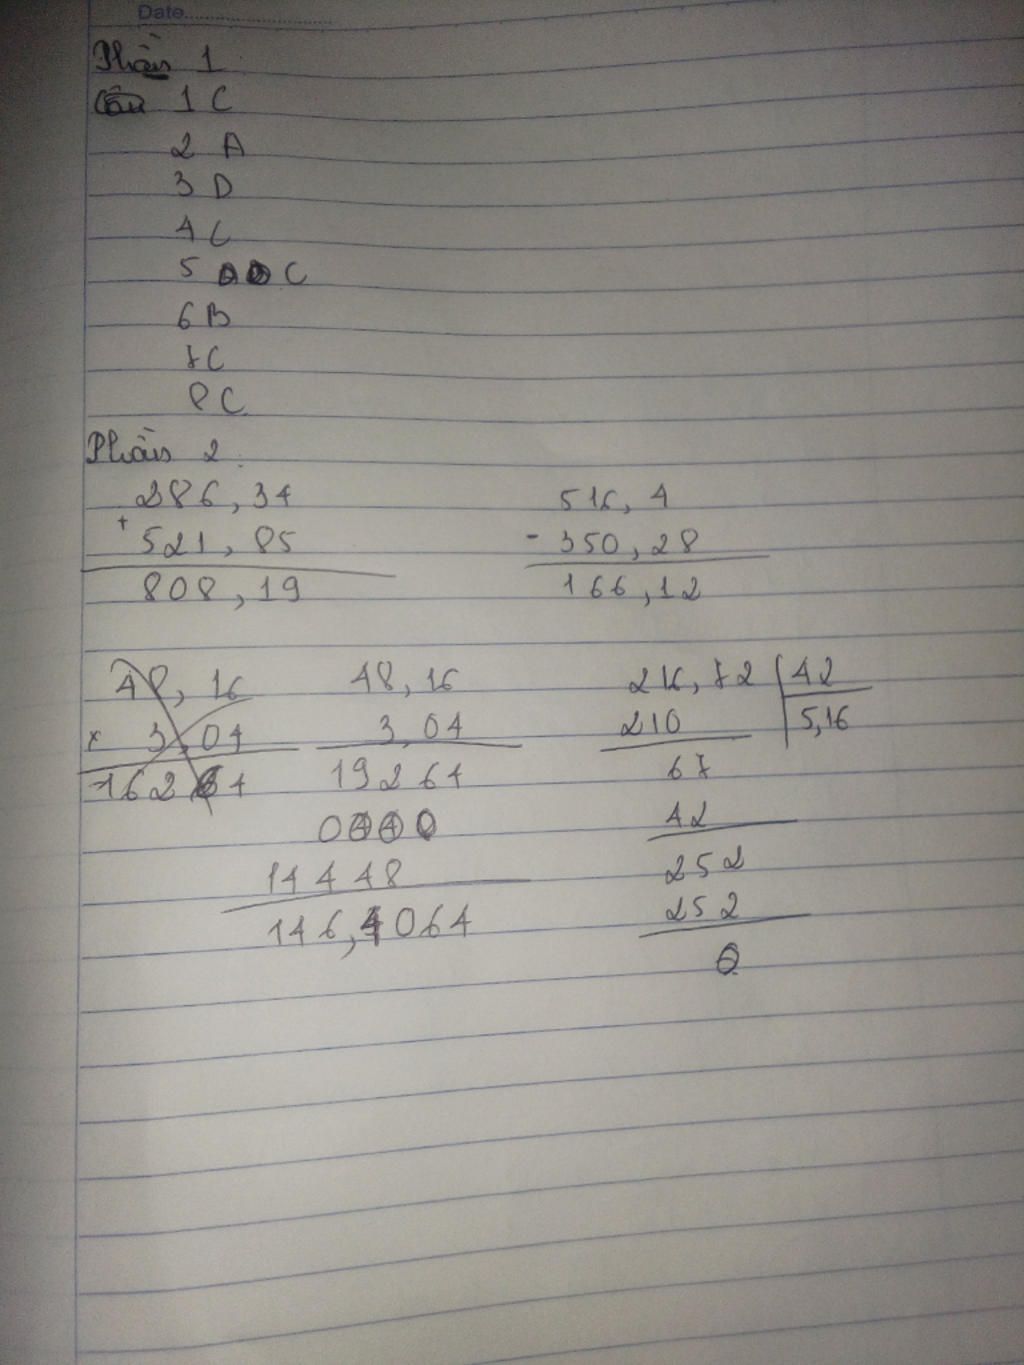 Date
Phần 1
Câu 1 C
2 A
3 D
4 C
5 C
6 B
7 C
8 C
Phần 2
286,34
+
521,85
808,19
516,4
-
350,28
166,12
48,16
x 3,04
48,16
3,04
19264
0000
14448
146,4064
216,72 42
210 5,16
67
42
252
252
0